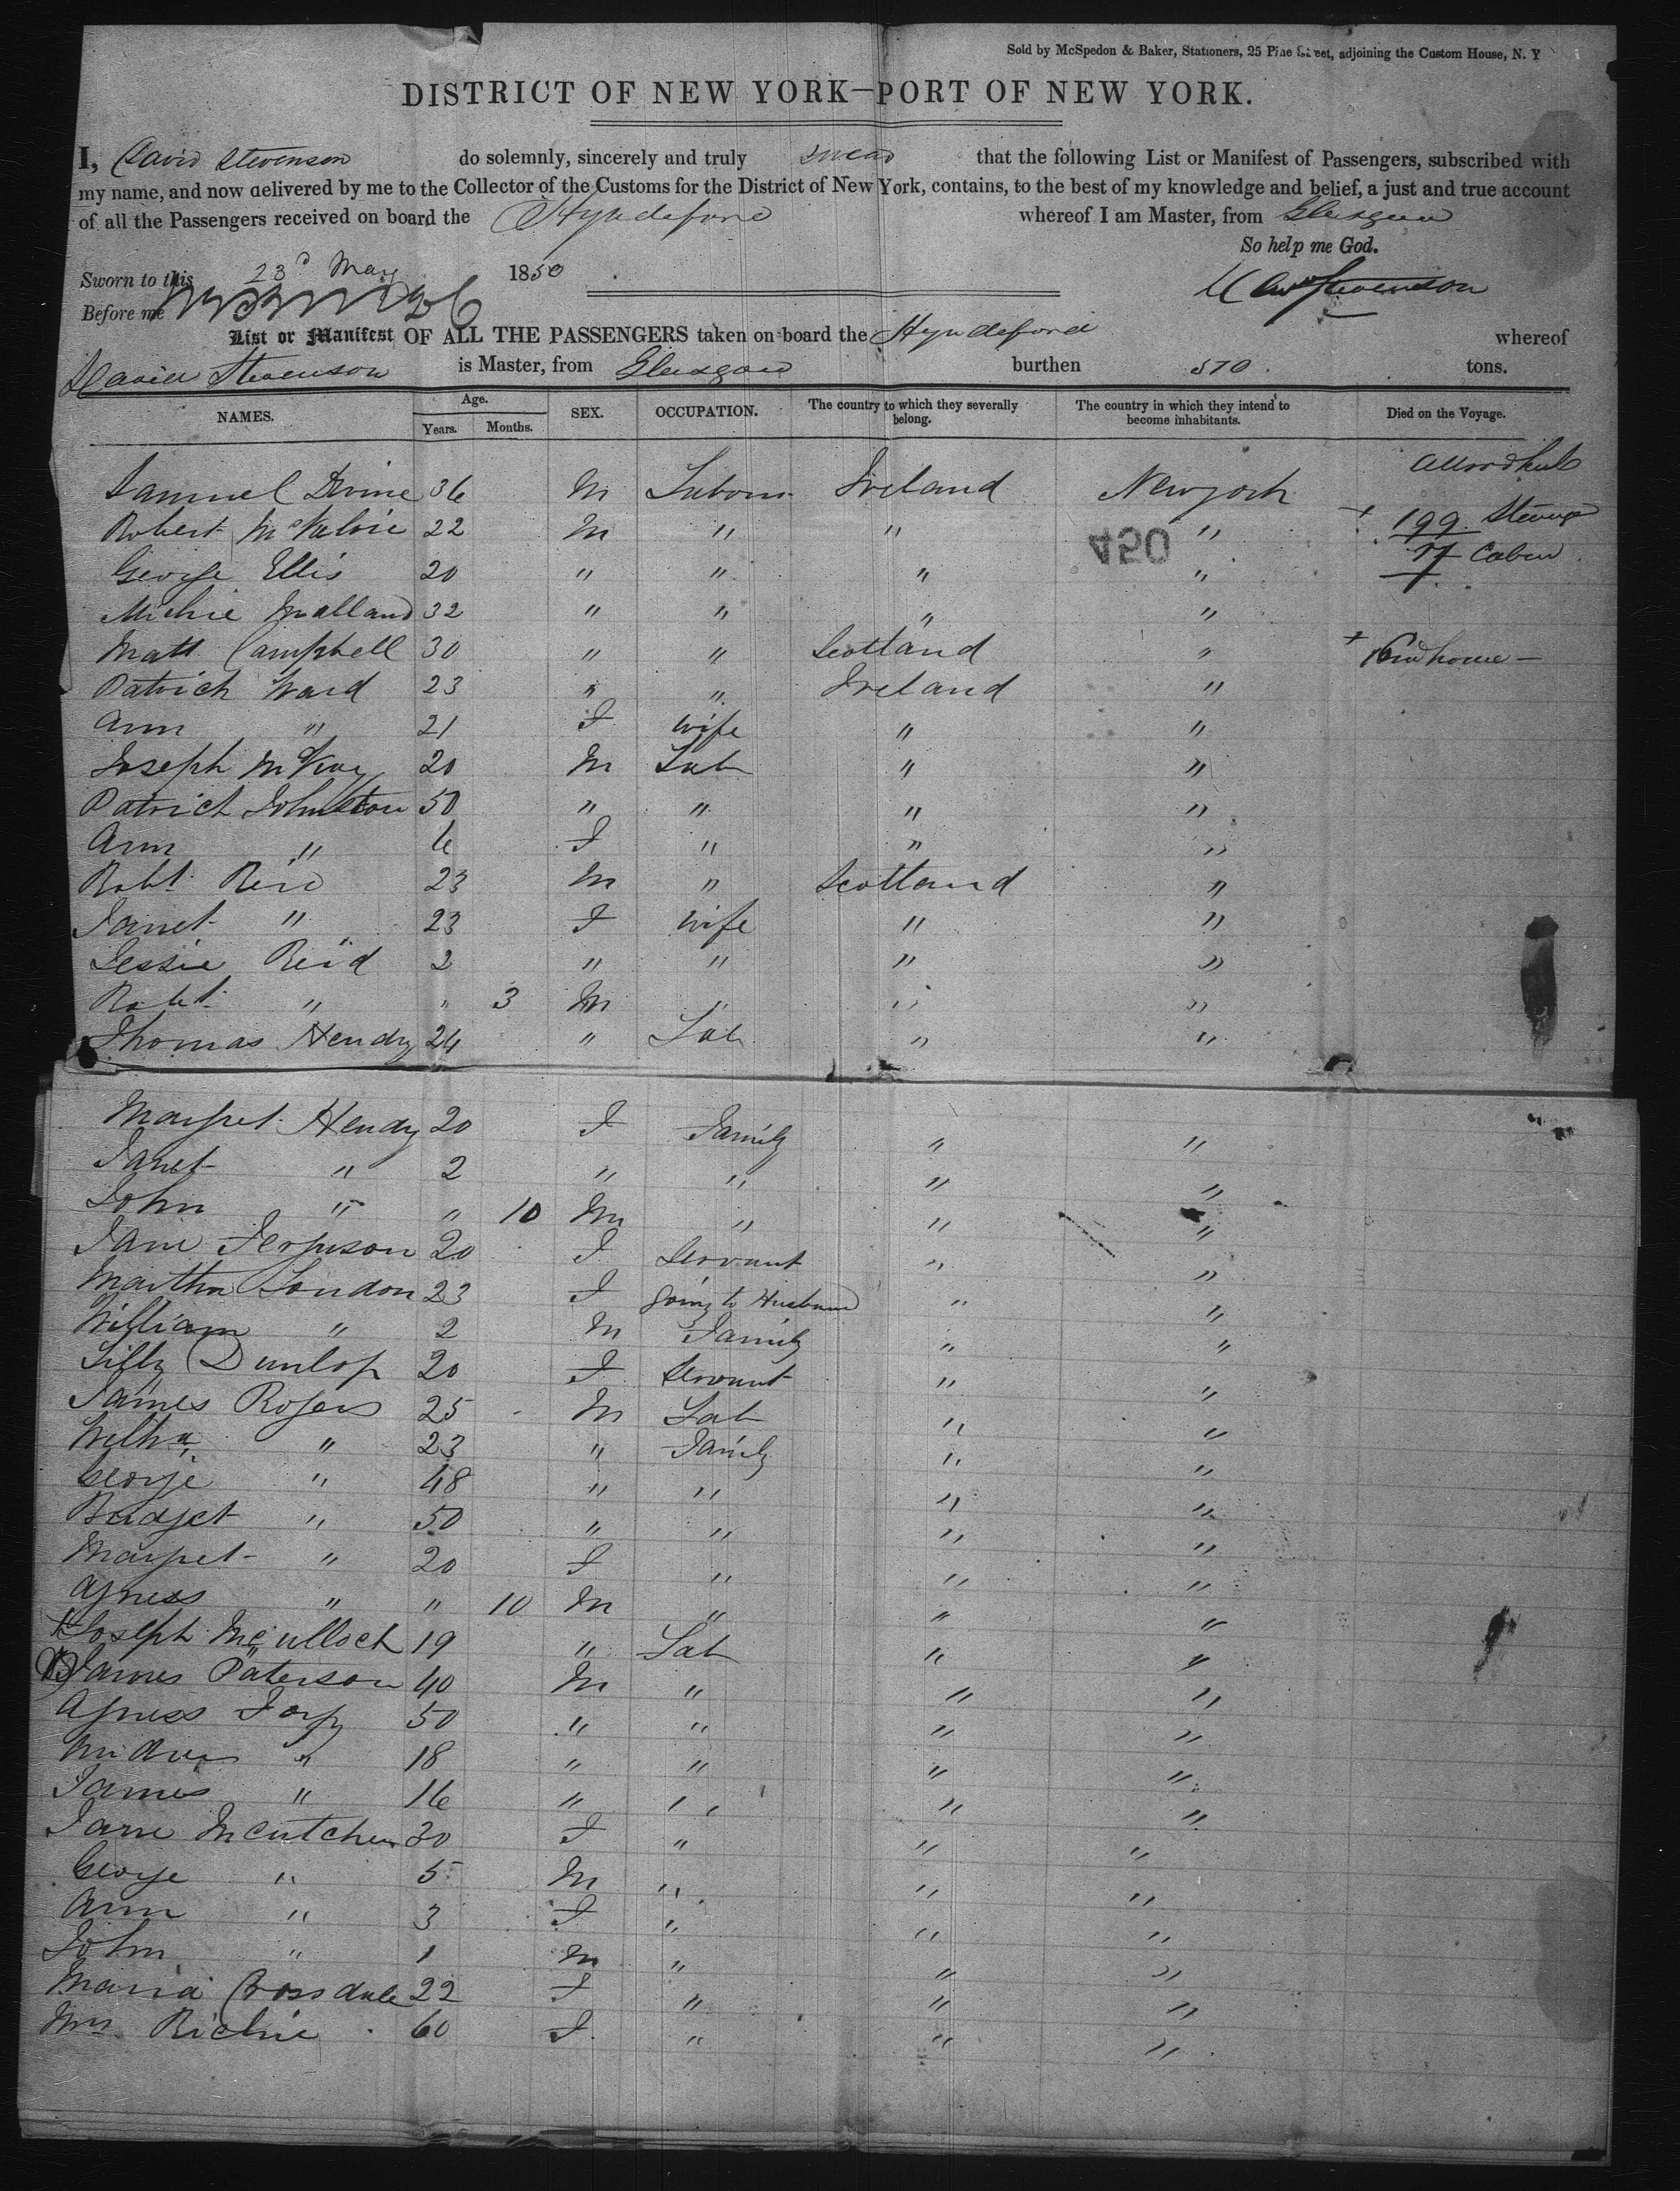 Sold by McSpedon & Baker, Stationers, 25 Pine Street, adjoining the Custom House, N. Y
DISTRICT OF NEW YORK—PORT OF NEW YORK.
I, David Stevenson do solemnly, sincerely and truly swear that the following List or Manifest of Passengers, subscribed with
my name, and now delivered by me to the Collector of the Customs for the District of New York, contains, to the best of my knowledge and belief, a just and true account
of all the Passengers received on board the Hyndeford whereof I am Master, from Glasgow
So help me God.
Sworn to this 23d May 1850
Stevenson
Before me
List or Manifest OF ALL THE PASSENGERS taken on board the Hyndeford whereof
David Stevenson is Master, from Glasgow burthen 570. tons.
NAMES. Age. Years. Months. SEX. OCCUPATION. The country to which they severally belong. The country in which they intend to become inhabitants. Died on the Voyage.
Samuel Divine 36 M Labour Ireland New york
Robert 22 M " " " 199 Steerage
450
George Ellis 20 " " " " 7 Cabin
32 " " " "
Matt Campbell 30 " " Scotland "
Patrick Ward 23 " " Ireland "
Ann " 21 F wife " "
Joseph McKay 20 M Lab " "
Patrick Johnston 50 " " " "
Ann " 6 F " " "
Robt Reid 23 M " Scotland "
Janet " 23 F wife " "
Jessie Reid 2 " " " "
Robt " " 3 M " " "
Thomas Hendry 24 " Lab " "
Margret Hendry 20 F Family " "
Janet " 2 " " " "
John " " 10 M " " "
Jane Ferguson 20 F Servant " "
Martha London 23 F going to Husband " "
William " 2 M Family " "
Lilly Dunlop 20 F Servant " "
James Rogers 25 M Lab " "
" 23 " Family " "
George " 48 " " " "
Bridget " 50 " " " "
Margret " 20 F " " "
Agness " " 10 M " " "
Joseph McCulloch 19 " Lab " "
James Paterson 40 M " " "
Agness 50 " " " "
" 18 " " " "
James " 16 " " " "
Jane McCutchen 30 F " " "
George " 5 M " " "
Ann " 3 F " " "
John " 1 M " " "
Maria Crossdale 22 F " " "
Mrs Richie 60 F " " "